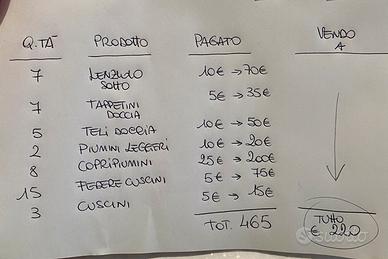 Q.TÀ PRODOTTO PAGATO VENDO A
7 LENZUOLO SOTTO 10€ → 70€
7 TAPPETINI DOCCIA 5€ → 35€
5 TELI DOCCIA 10€ → 50€
2 PIUMINI LEGGERI 10€ → 20€
8 COPRIPIUMINI 25€ → 200€
15 FEDERE CUSCINI 5€ → 75€
3 CUSCINI 5€ → 15€
TOT. 465
TUTTO
€ 220
Subito